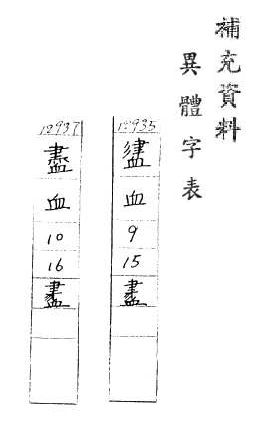 補充資料
異體字表
12935
血
9
15
盡
12937
血
10
16
盡